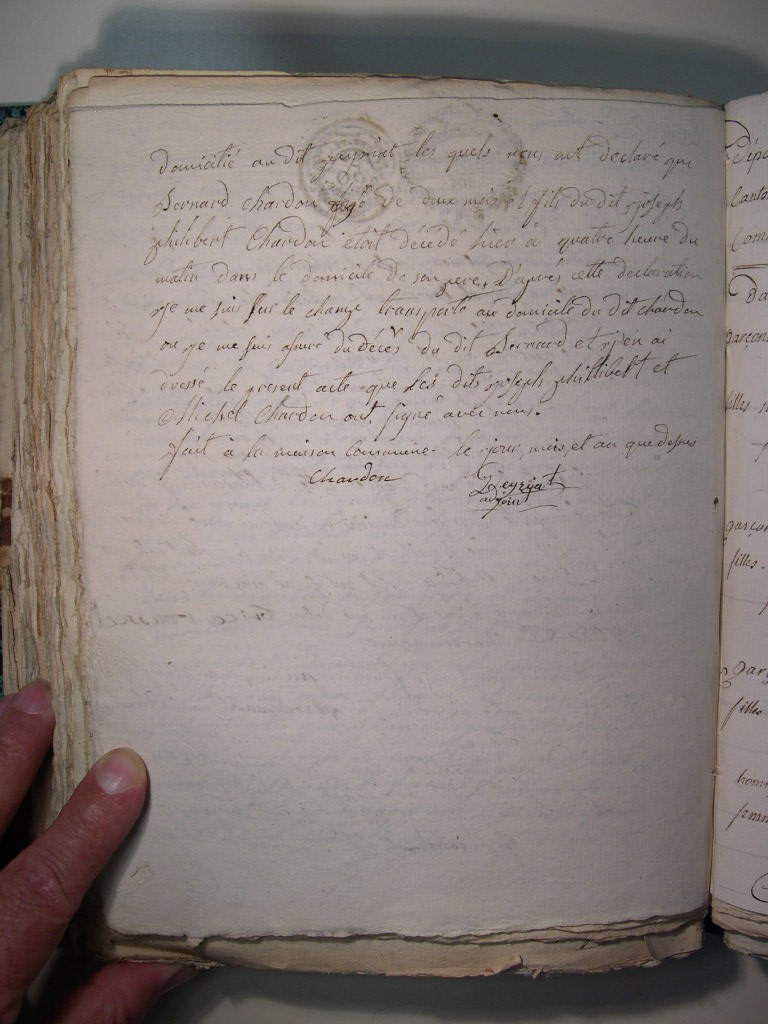 domicilié au dit peyriat les quels nous ont declaré que
Bernard Chardon agé de deux mois et fils du dit joseph
philibert Chardon etoit décédé hier à quatre heure du
matin dans le domicile de son pere, D'après cette declaration
je me suis sur le champ transporté au domicile du dit chardon
ou je me suis assuré du décès du dit Bernard et j'en ai
dressé le present acte que les dits joseph phillibert et
Michel Chardon ont signé avec nous.
fait à la maison Commune le jour, mois, et an que dessus
Chardon
adjoint
Canto
Com
Da
garçons
filles
garçon
filles.
gar
filles
homm
femm